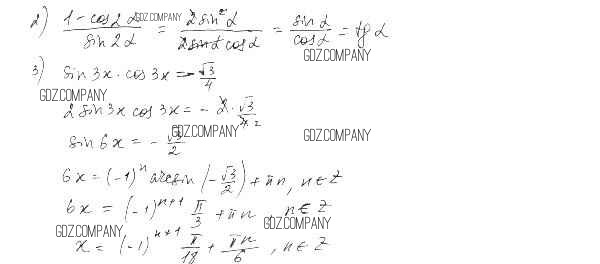 2) (1 - cos2α)/(sin2α) = (2sin²α)/(2sinα cosα) = sinα/cosα = tgα
GDZ.COMPANY
GDZ.COMPANY
3) sin3x · cos3x = -√3/4
GDZ.COMPANY
2 sin3x cos3x = - 2 · √3/(4 2)
GDZ.COMPANY
GDZ.COMPANY
sin6x = - √3/2
6x = (-1)ⁿ arcsin(-√3/2) + πn, n∈Z
6x = (-1)ⁿ⁺¹ π/3 + πn, n∈Z
GDZ.COMPANY
GDZ.COMPANY
x = (-1)ⁿ⁺¹ π/18 + πn/6, n∈Z